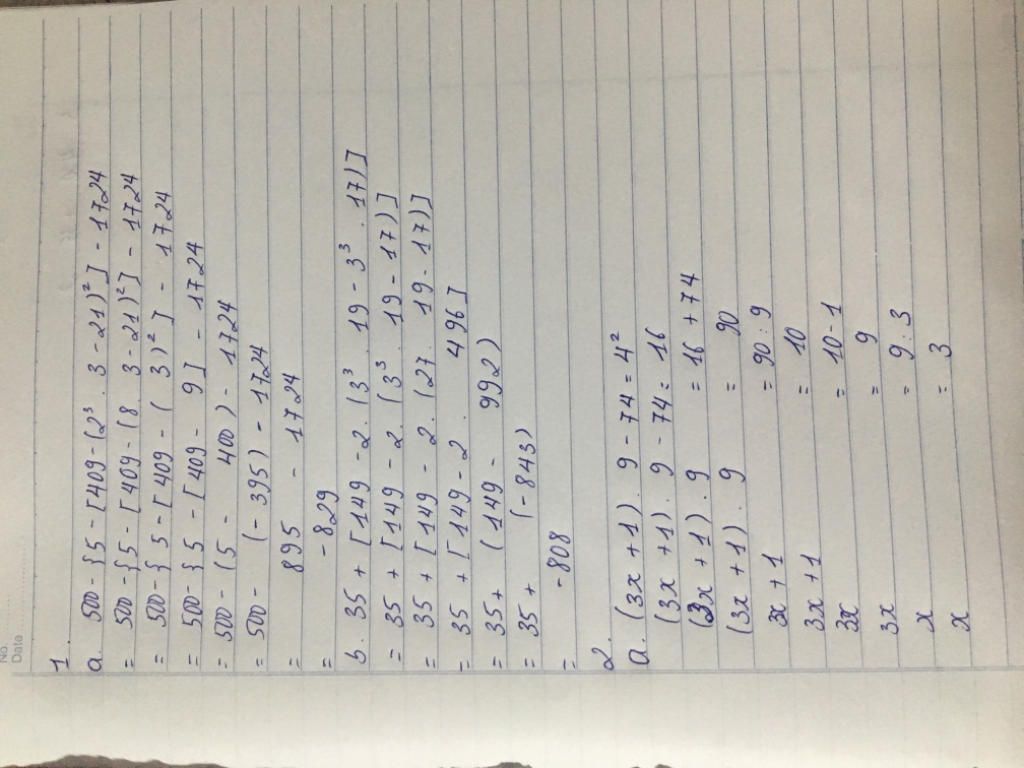 No.
Date
1.
a. 500 - {5 - [409 - (2³ . 3 - 21)²] - 1724
= 500 - {5 - [409 - (8 . 3 - 21)²] - 1724
= 500 - { 5 - [409 - ( 3)²] - 1724
= 500 - { 5 - [409 - 9] - 1724
= 500 - (5 - 400) - 1724
= 500 - (-395) - 1724
= 895 - 1724
= -829
b. 35 + [149 - 2. (3³ . 19 - 3³ . 17)]
= 35 + [149 - 2. (3³ . 19 - 17)]
= 35 + [149 - 2. (27. 19 - 17)]
= 35 + [149 - 2 . 496]
= 35 + (149 - 992)
= 35 + (-843)
= -808
2.
a. (3x + 1) . 9 - 74 = 4²
(3x + 1) . 9 - 74 = 16
(3x + 1) . 9 = 16 + 74
(3x + 1) . 9 = 90
3x + 1 = 90 : 9
3x + 1 = 10
3x = 10 - 1
3x = 9
x = 9 : 3
x = 3